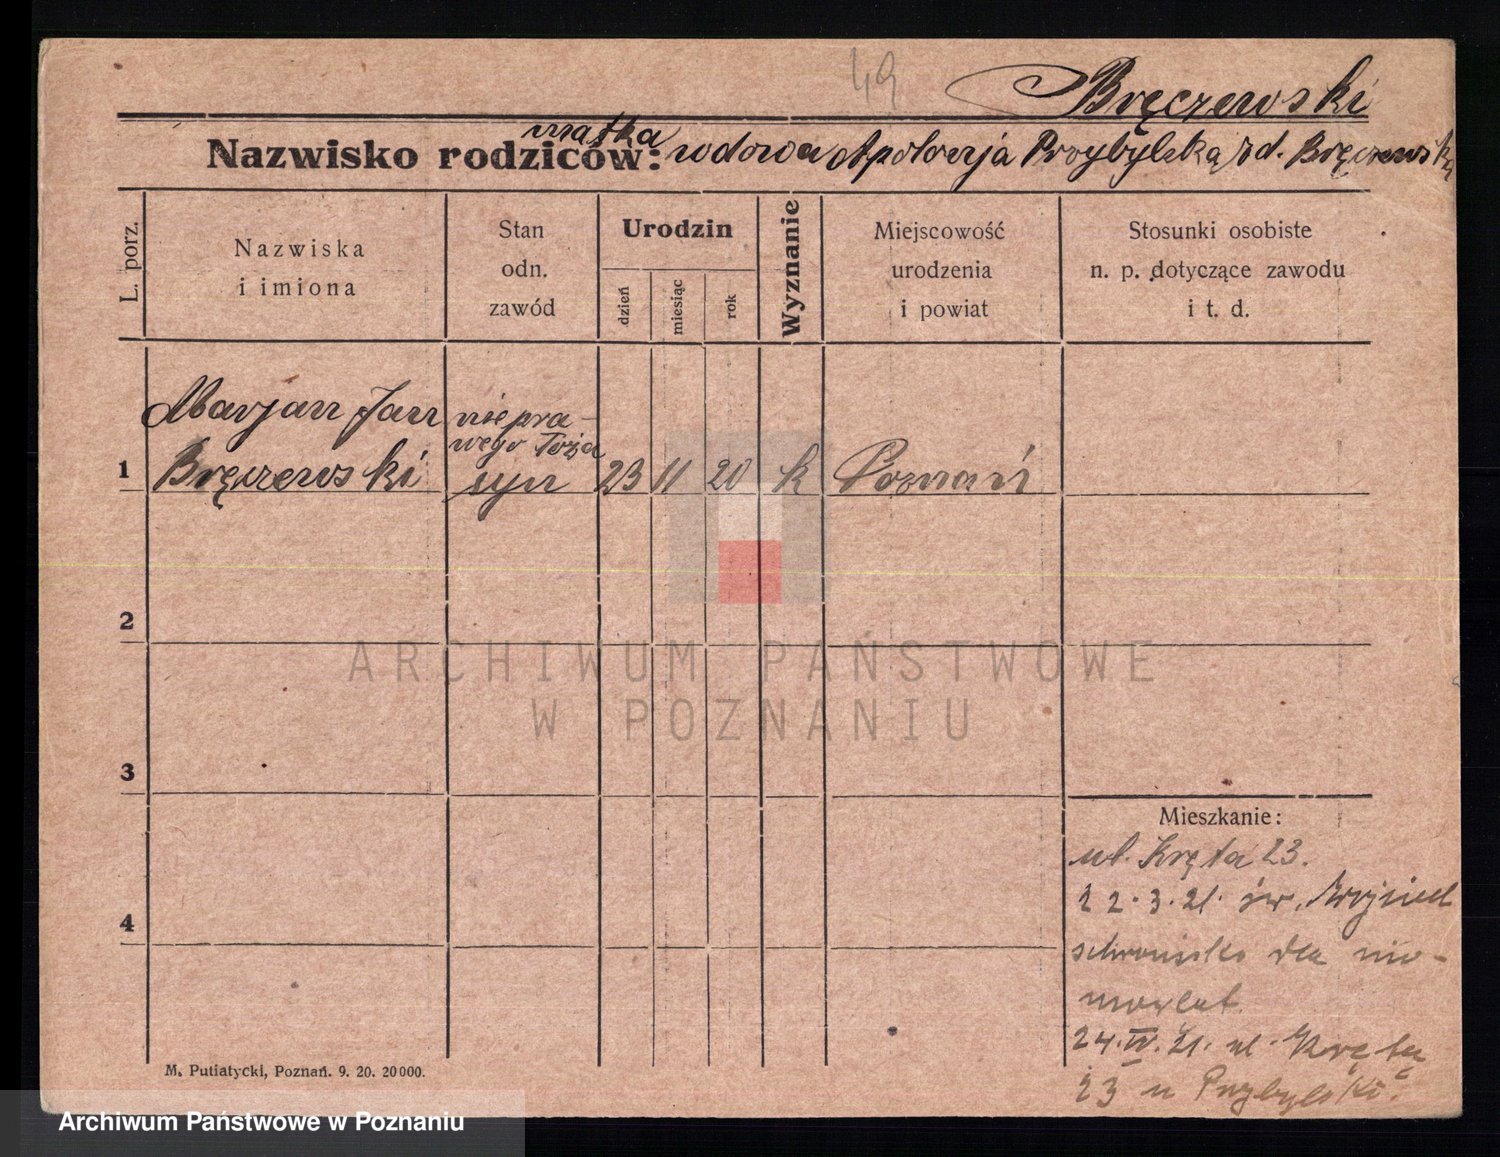 49
Bręczewski
matka
Nazwisko rodziców: wdowa Apolonja Przybylska zd. Bręczewska
L. porz.
Nazwiska
i imiona
Stan
odn.
zawód
Urodzin
dzień
miesiąc
rok
Wyznanie
Miejscowość
urodzenia
i powiat
Stosunki osobiste
n. p. dotyczące zawodu
i t. d.
Marjan Jan niepra-
wego łoża
1 Bręczewski syn 23 11 20 k Poznań
2
ARCHIWUM PAŃSTWOWE
W POZNANIU
3
Mieszkanie:
ul. Kręta 23.
22.3.21. św.
4
schronisko dla nie-
mowląt
24.IV.21. ul. Kręta
23 u Przybylski.
M. Putiatycki, Poznań. 9. 20. 20000.
Archiwum Państwowe w Poznaniu